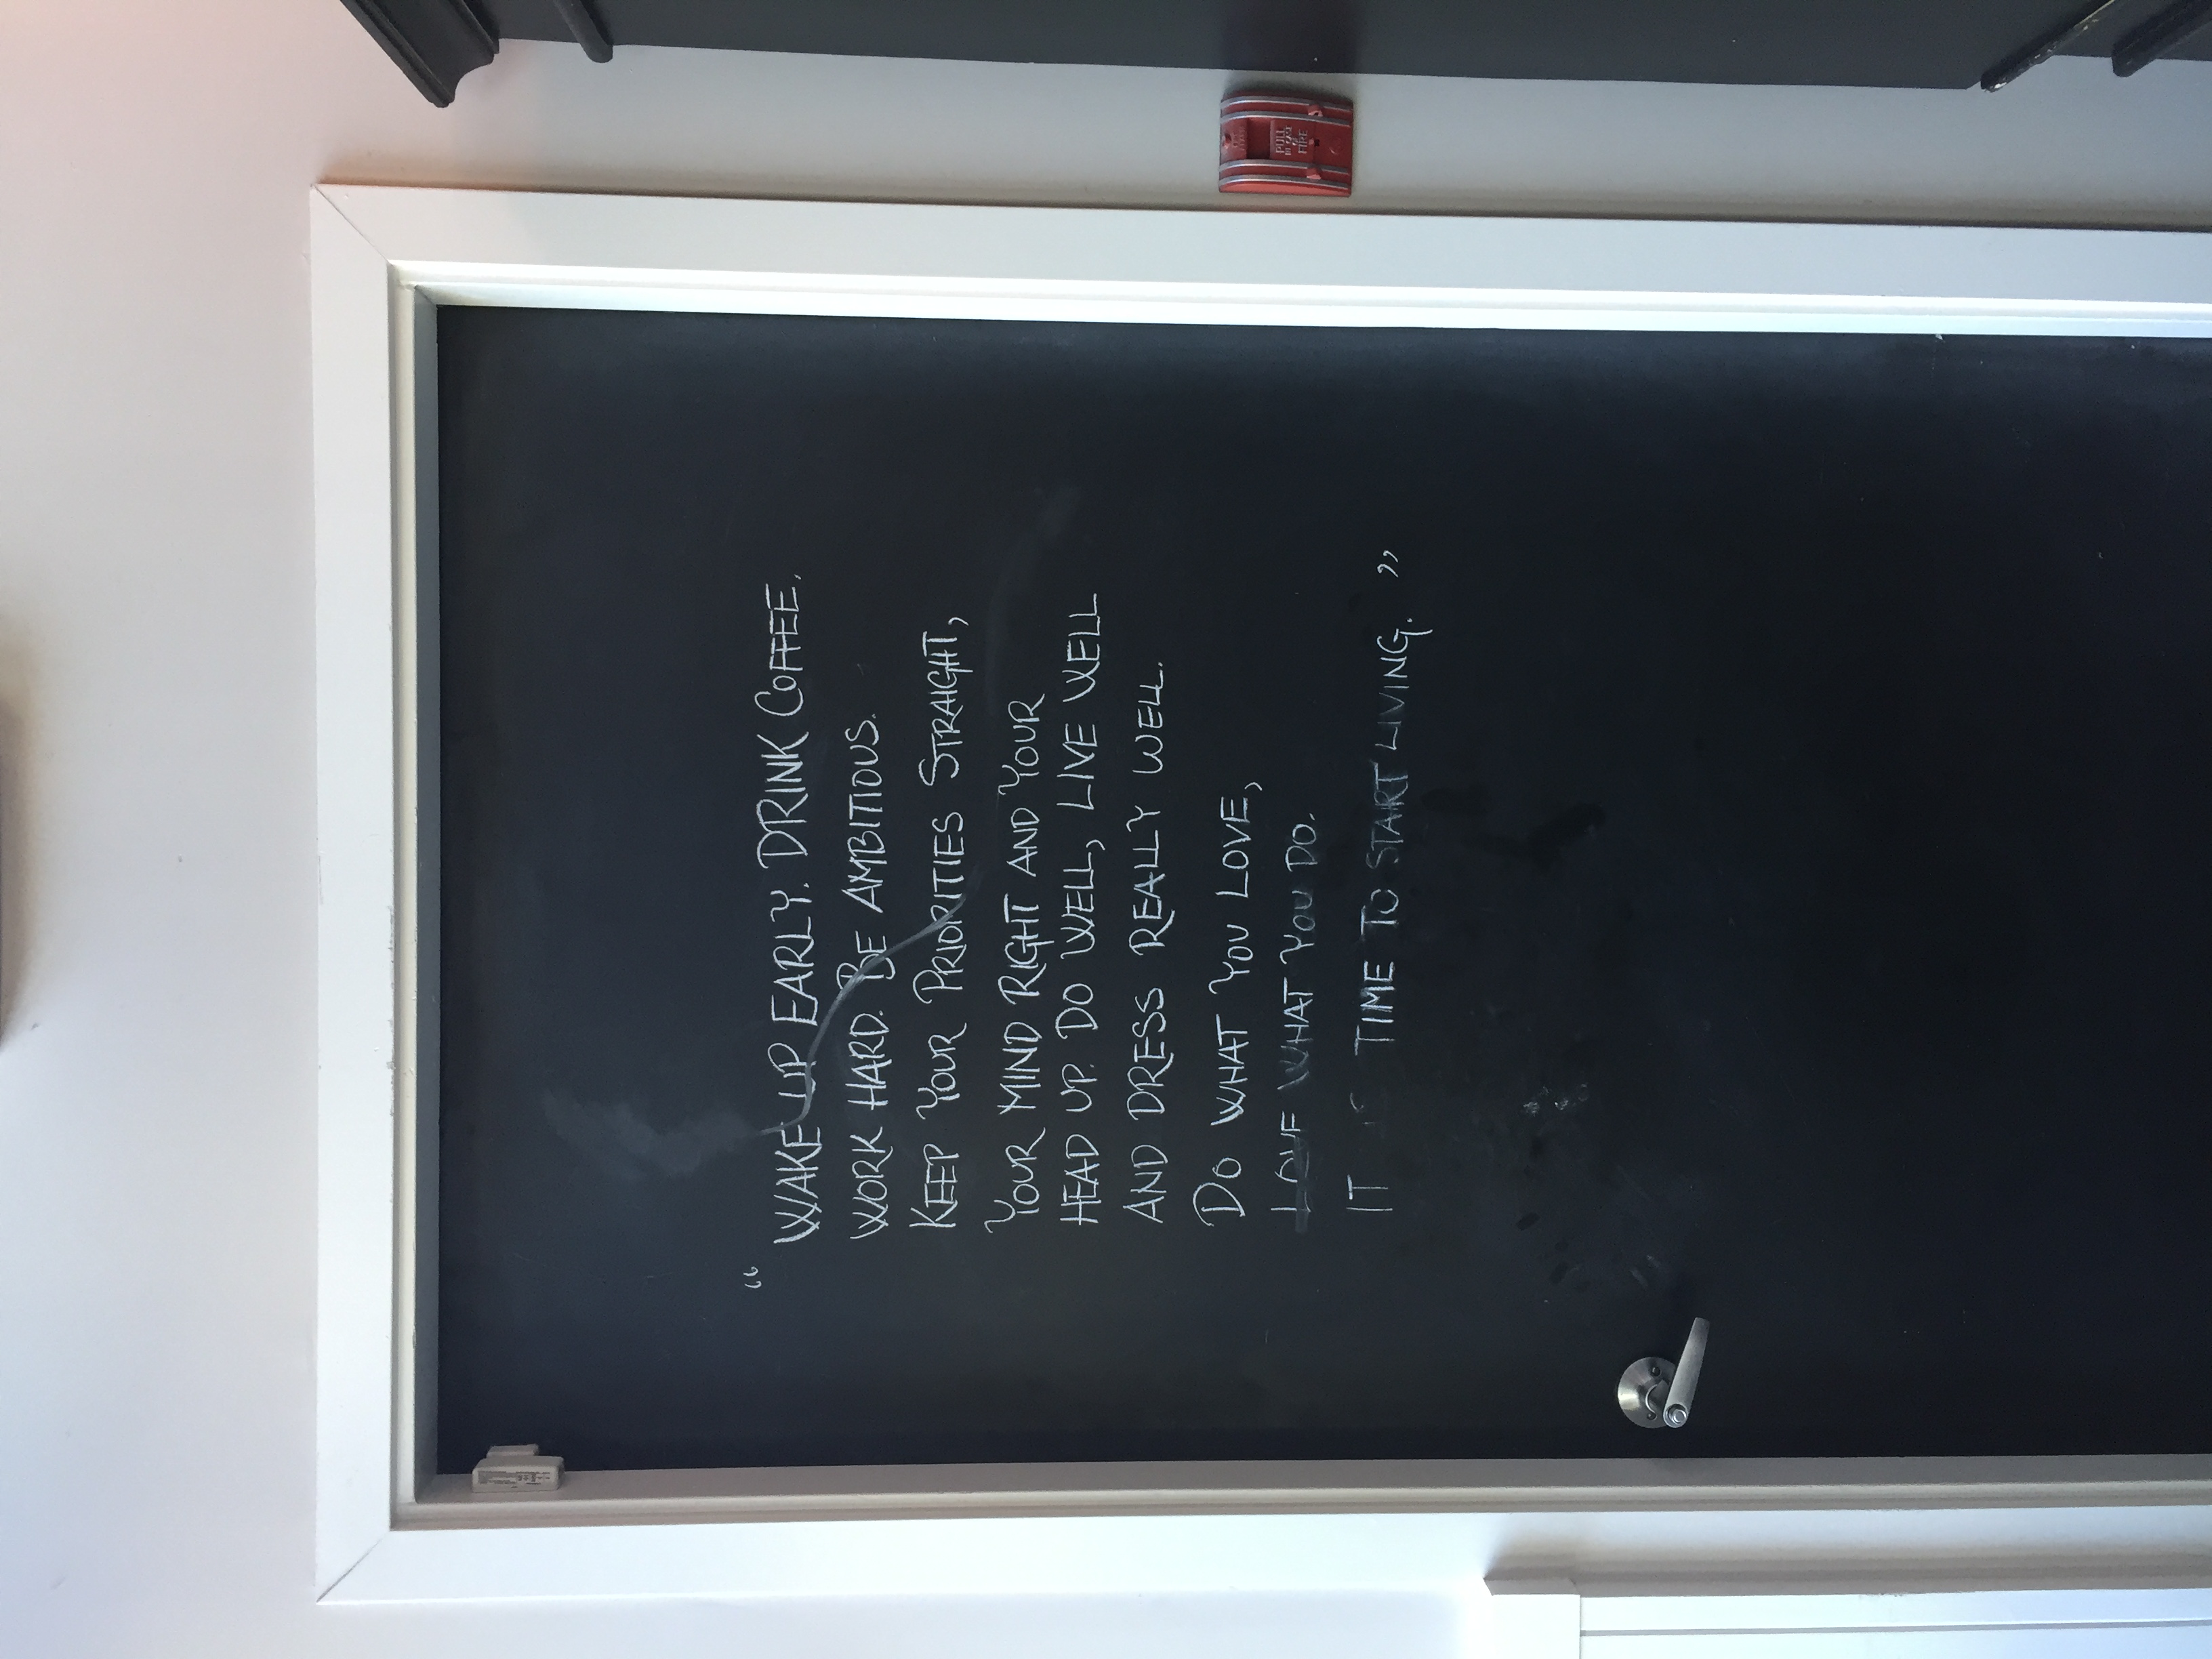 “ WAKE UP EARLY. DRINK COFFEE.
WORK HARD. BE AMBITIOUS.
KEEP YOUR PRIORITIES STRAIGHT,
YOUR MIND RIGHT AND YOUR
HEAD UP. DO WELL, LIVE WELL
AND DRESS REALLY WELL.
DO WHAT YOU LOVE,
LOVE WHAT YOU DO.
IT IS TIME TO START LIVING. ”
PULL
FIRE